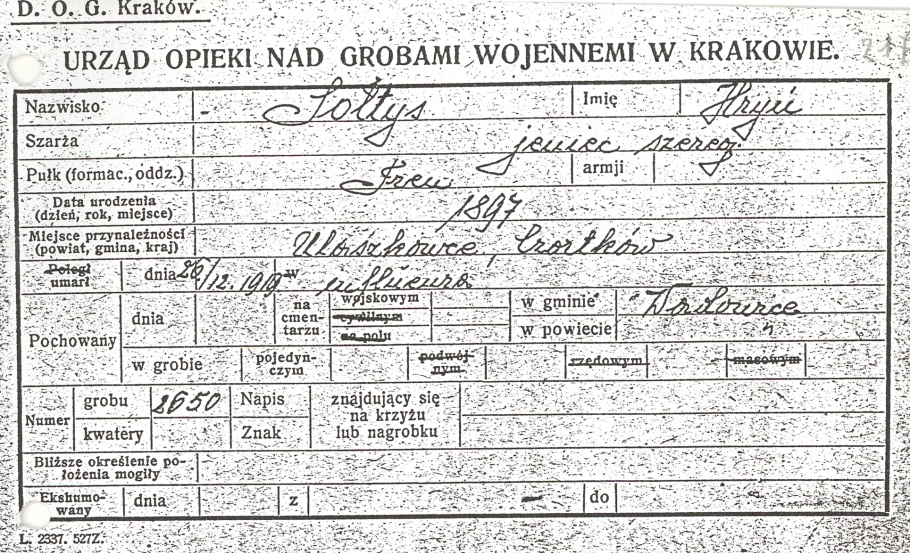 D. O. G. Kraków.
URZĄD OPIEKI NAD GROBAMI WOJENNEMI W KRAKOWIE. 217
Nazwisko Sołtys Imię Hryń
Szarża jeniec szereg.
Pułk (formac., oddz.) Tren armji
Data urodzenia
(dzień, rok, miejsce) 1897
Miejsce przynależności
(powiat, gmina, kraj) Ułaszkowce, Czortków
Poległ
umarł dnia 26/12.1919 w influenza
Pochowany dnia na cmentarzu wojskowym cywilnym na polu w gminie Wadowice
w powiecie "
w grobie pojedyńczym podwójnym rzędowym masowym
Numer grobu 2650 Napis znajdujący się
kwatery Znak na krzyżu
lub nagrobku
Bliższe określenie po-
łożenia mogiły
Ekshumo-
wany dnia z – do
L. 2337. 527Z.